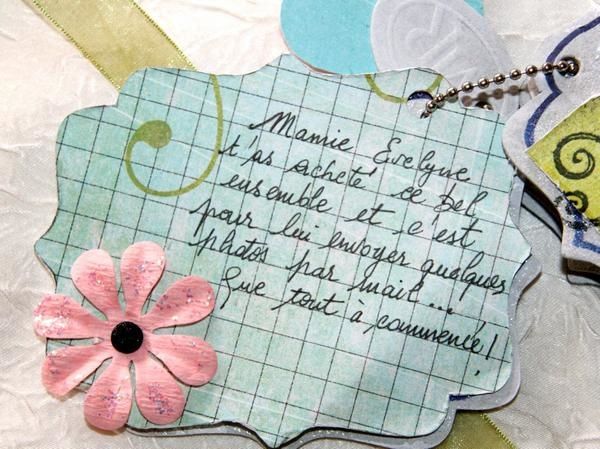 Mamie Evelyne
t'as acheté ce bel
ensemble et c'est
pour lui envoyer quelques
photos par mail...
que tout à commencé!